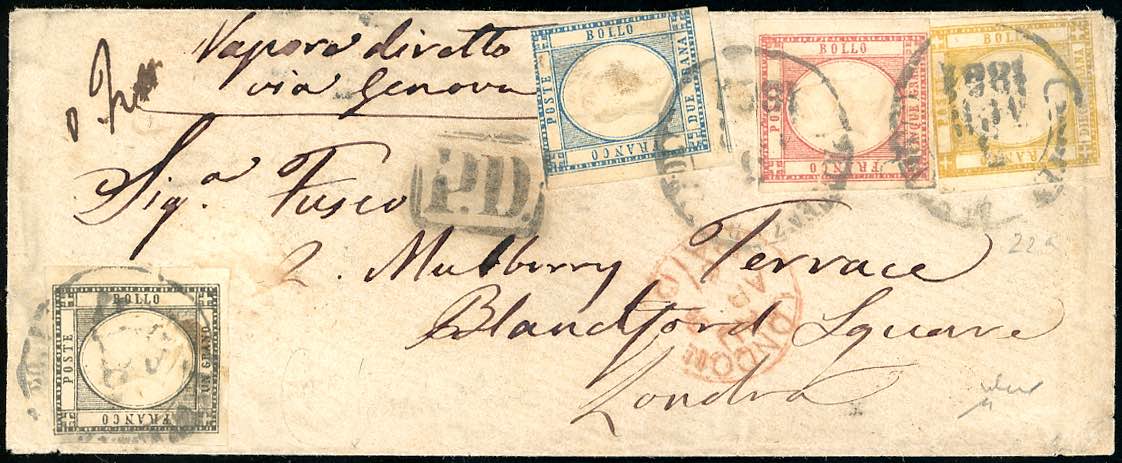 Vapore diretto
via Genova
P.D.
Sig.a Fusco
2. Mulberry Terrace
Blandford Square
Londra
BOLLO
POSTE
DUE GRANA
FRANCO
BOLLO
POSTE
CINQUE GRANA
FRANCO
BOLLO
POSTE
DIECI GRANA
FRANCO
1861
BOLLO
POSTE
UN GRANO
FRANCO
LONDON
AP
22